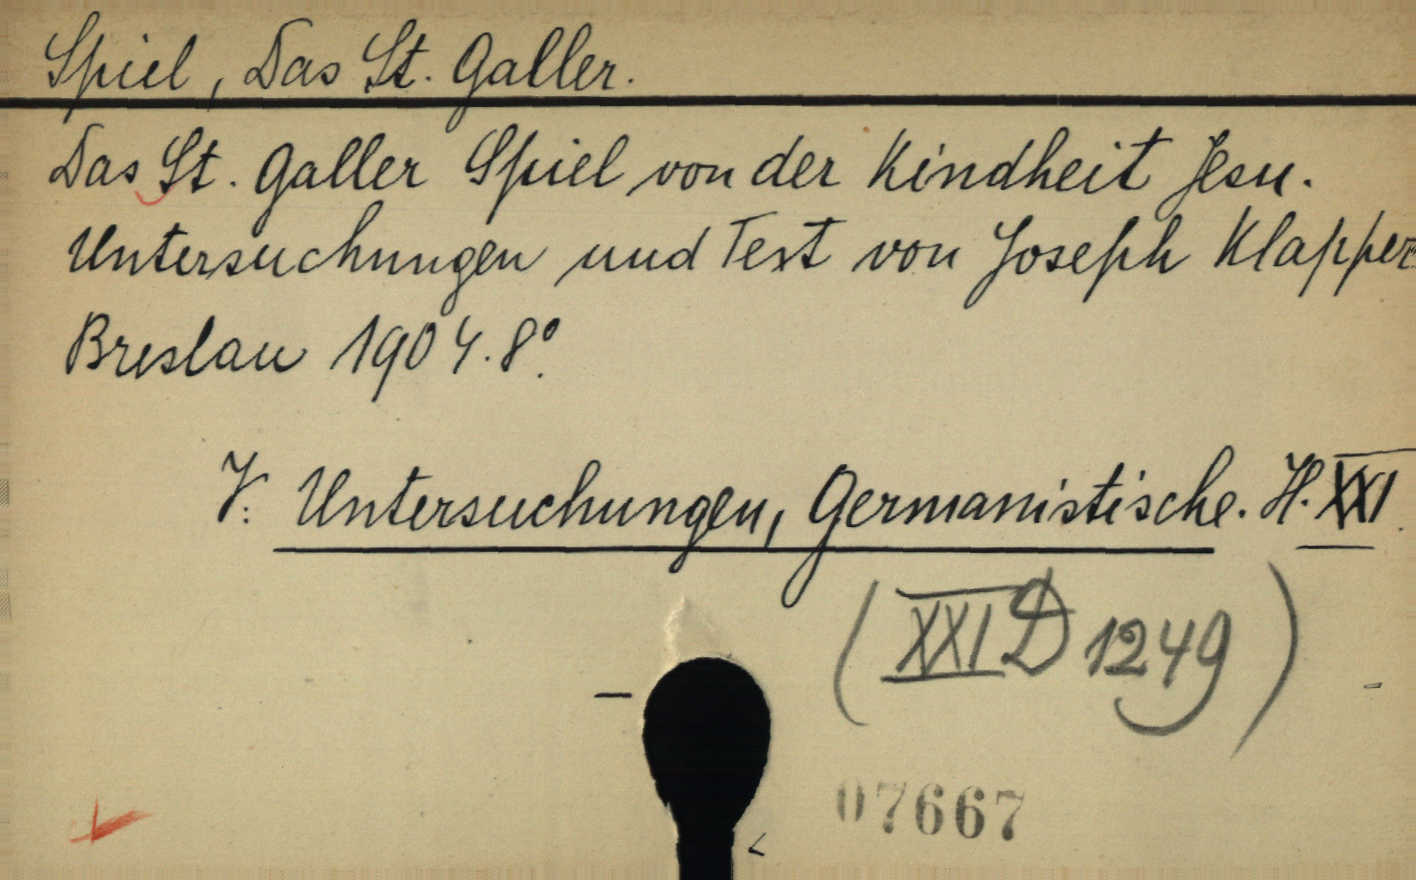 Spiel, Das St. Galler.
Das St. Galler Spiel von der Kindheit Jesu.
Untersuchungen und Text von Joseph Klapper
Breslau 1904. 8°.
V: Untersuchungen, Germanistische. H. XXI.
(XXI D 1249)
07667